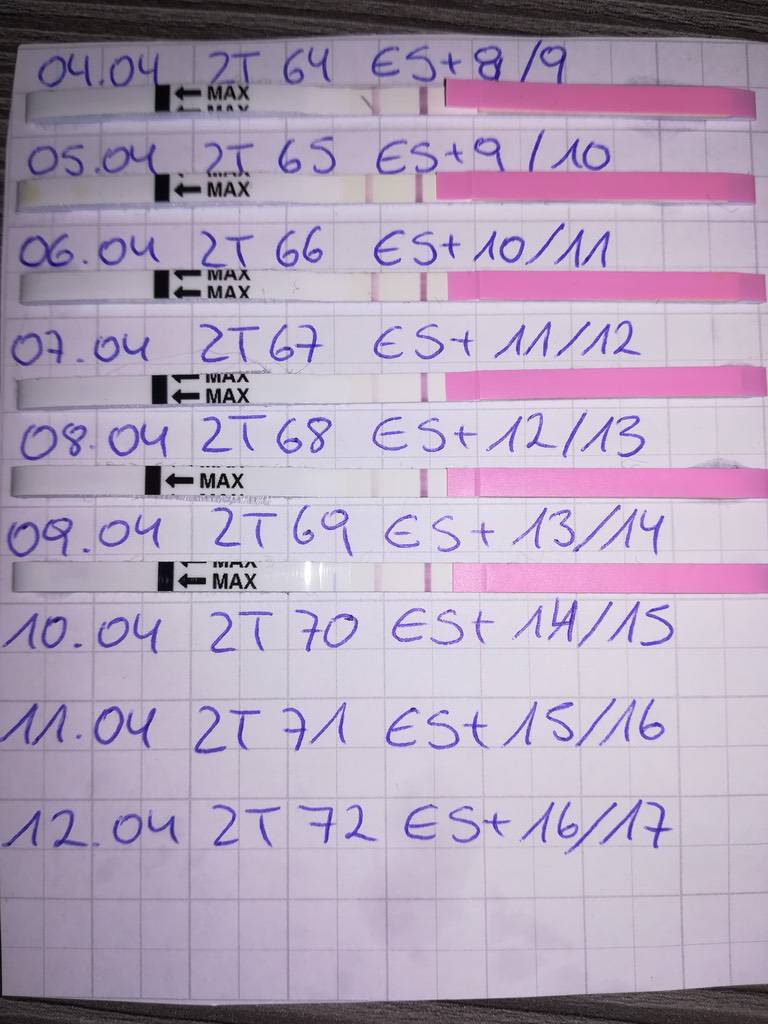 04.04 ZT 64 ES+8/9
← MAX
05.04 ZT 65 ES+9/10
← MAX
06.04 ZT 66 ES+10/11
← MAX
← MAX
07.04 ZT 67 ES+11/12
← MAX
← MAX
08.04 ZT 68 ES+12/13
← MAX
09.04 ZT 69 ES+13/14
← MAX
10.04 ZT 70 ES+14/15
11.04 ZT 71 ES+15/16
12.04 ZT 72 ES+16/17